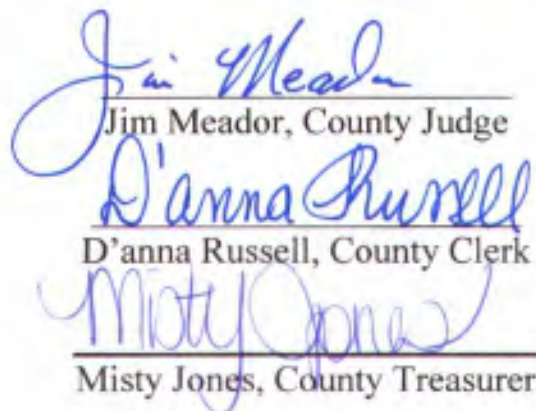 Jim Meador
Jim Meador, County Judge
D'anna Russell
D'anna Russell, County Clerk
Misty Jones
Misty Jones, County Treasurer